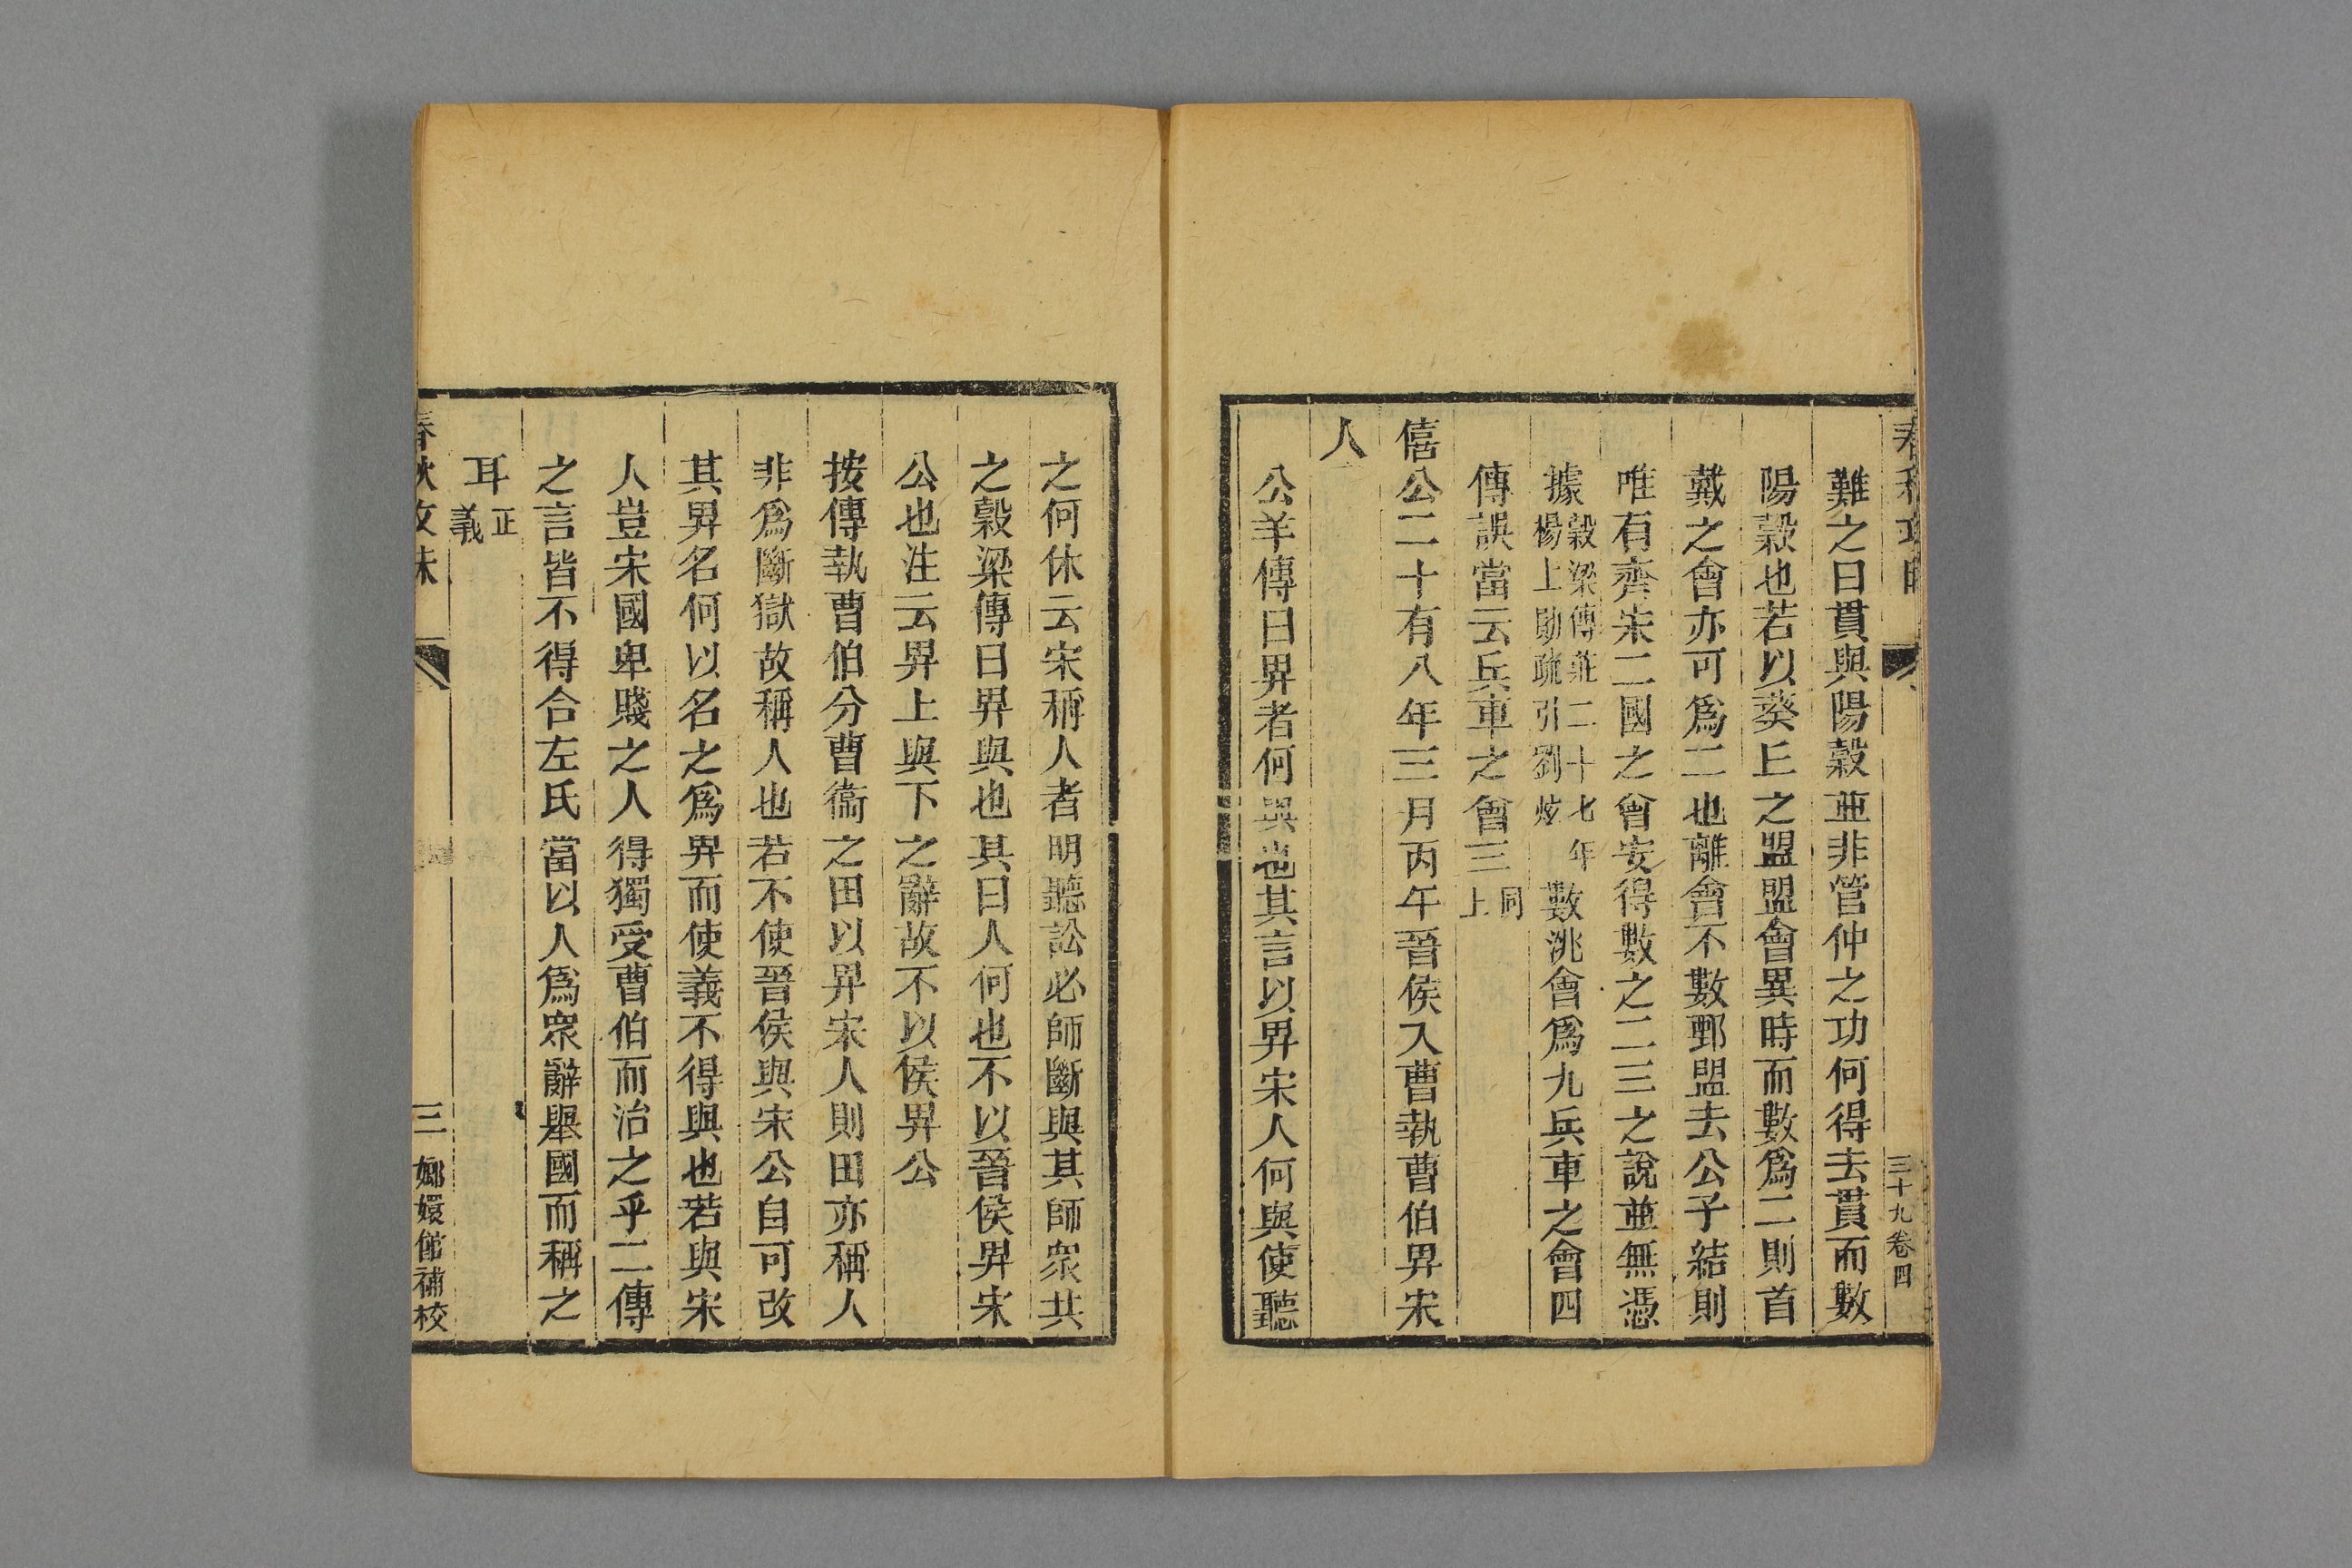 三十九卷四
難之曰貫與陽穀並非管仲之功何得去貫而數
陽穀也若以葵丘之盟盟會異時而數爲二則首
戴之會亦可爲二也離會不數鄄盟去公子結則
唯有齊宋二國之會安得數之二三之說並無憑
據穀梁傳莊二十七年楊士勛疏引劉炫數洮會爲九兵車之會四
傳誤當云兵車之會三同上
僖公二十有八年三月丙午晉侯入曹執曹伯畀宋
人
公羊傳曰畀者何與也其言以畀宋人何與使聽
之何休云宋稱人者明聽訟必師斷與其師眾共
之穀梁傳曰畀與也其曰人何也不以晉侯畀宋
公也注云畀上與下之辭故不以侯畀公
按傳執曹伯分曹衞之田以畀宋人則田亦稱人
非爲斷獄故稱人也若不使晉侯與宋公自可改
其畀名何以名之爲畀而使義不得與也若與宋
人豈宋國卑賤之人得獨受曹伯而治之乎二傳
之言皆不得合左氏當以人爲眾辭舉國而稱之
耳正義
春秋攻昧
三
嫏嬛館補校